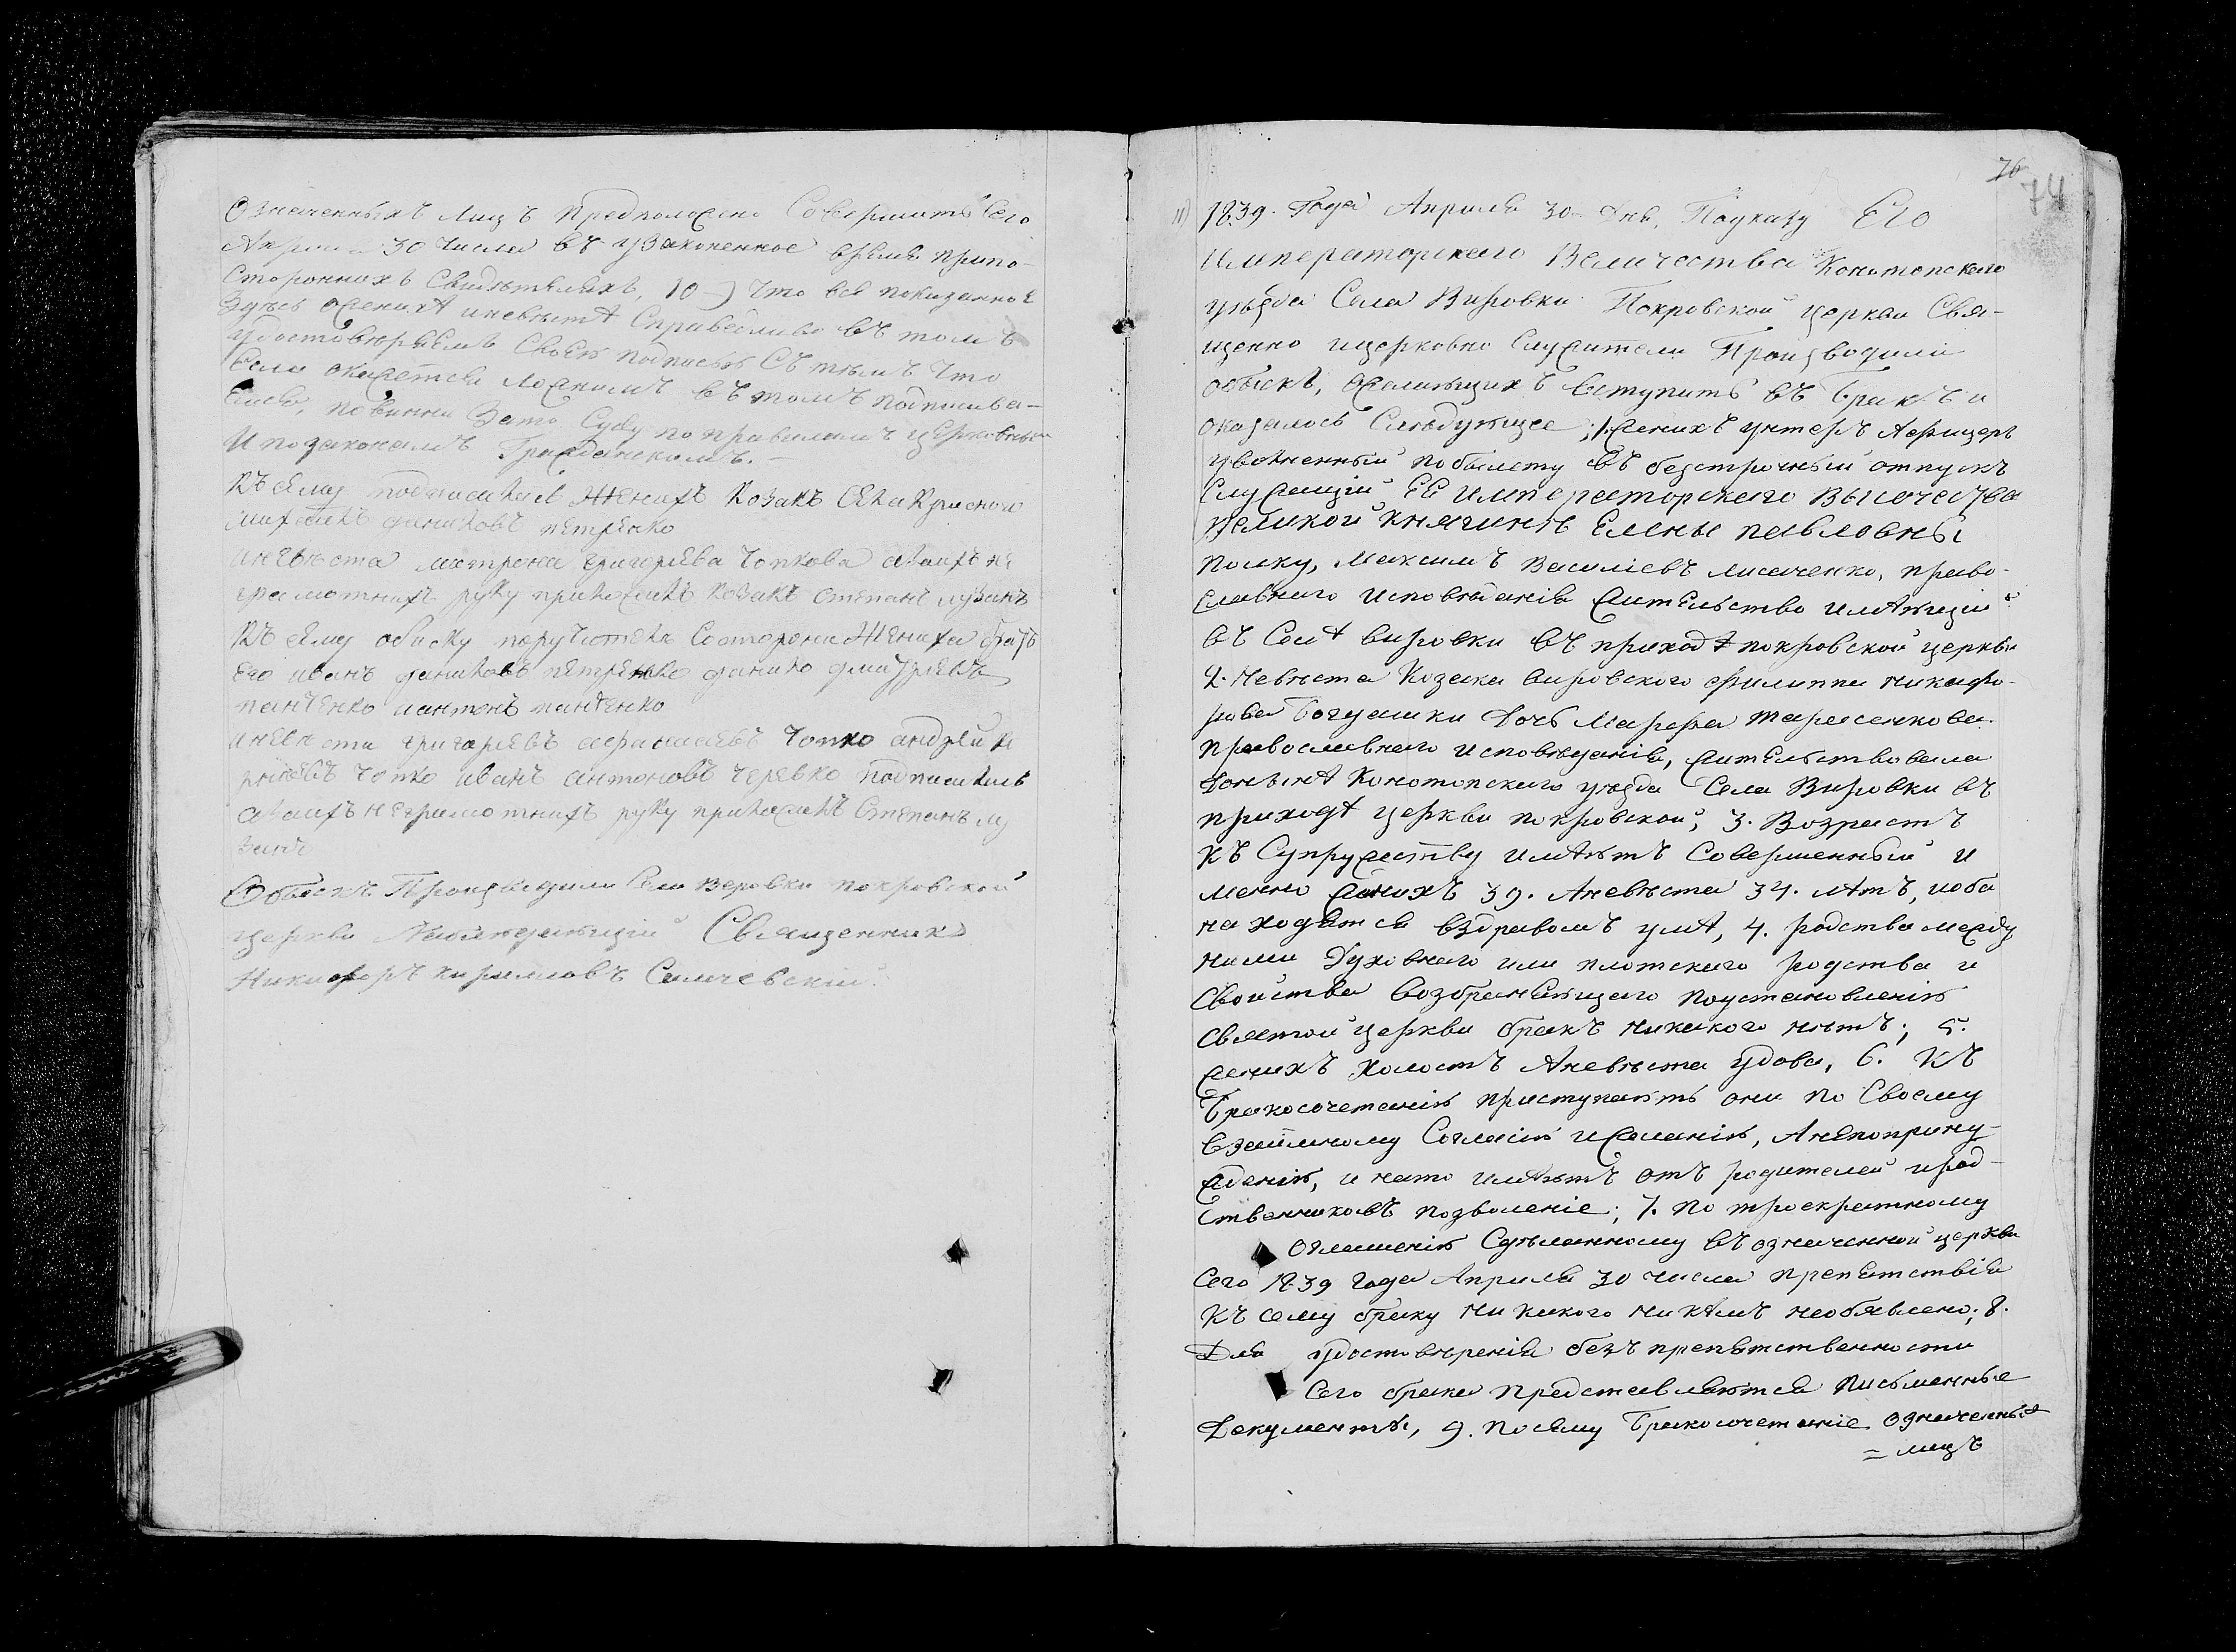 Означенныхъ лицъ предположено Совершить Сего
Апреля 30 числа въ узаконенное время припо-
стороннихъ Свидѣтеляхъ, 10) что всё показанное
здѣсь о женихѣ и невѣстѣ Справедливо въ томъ
удостовѣряемъ Своею подписью Съ тѣмъ что
если окажется ложнымъ въ томъ подписыва-
емся, повинни Зато Суду поправиламъ церковным
И позаконамъ Гражданскимъ. –
Къ сему подписался женихъ козакъ
даниловъ петренко
иневѣста матрона григорьева чопкова аваихъ не
грамотнихъ руку приложилъ козакъ степанъ лузанъ
Къ сему обиску поручители Состорони жениха братъ
его иванъ даниловъ петренко данило дмитриевъ
панченко антонъ панченко
иневести григориевъ афанасиевъ чопко андрей
чопко иванъ антоновъ черевко подписались
аваихъ неграмотнихъ руку приложилъ Степанъ лу
занъ
Обыскъ Производили Села Веровки покровской
церкви Священникъ
Никифоръ кириловъ
76
74
11) 1839. Года Апреля 30 Дня, Поуказу Его
Императорскаго Величества Конотопскаго
уѣзда Села Вировки Покровской церкви Свя-
щенно ицерковно Служители Производили
обыскъ, желающихъ вступить въ Бракъ и
оказалось Слѣдующее; 1. женихъ унтеръ Афицеръ
уволненный побилету въ безсрочный отпускъ
Служащій ЕЯ императорскаго высочества
великой княгинѣ Елены павловны
полку, Максимъ Василіевъ лисаченко, право-
славнаго исповѣданія жительство имѣющій
въ Селѣ вировки въ приходѣ покровской церкви
2. Невѣста Козака вировского филиппа никифо-
рова Богдашки дочь Марфа тарасенкова
православнаго исповѣданія, жительствовала
донынѣ Конотопскаго уѣзда Села Вировки въ
приходѣ церкви покровской; 3. Возрастъ
къ Супружеству имѣютъ Совершенный и
менно женихъ 39. Аневѣста 34. лѣтъ, иоба
находятся вздравомъ умѣ, 4. родства между
ними Духовнаго или плотскаго родства и
свойства возбраняющаго поустановленію
святой церкви бракъ никакого нѣтъ; 5.
женихъ холостъ Аневѣста удова, 6. Къ
Бракосочетанію приступаютъ они по Своему
взаимному Согласію ижеланію, Анепоприну-
жденію, и нато имѣютъ отъ родителей ирод-
ственниковъ позволеніе; 7. по троекратному
оглашенію Сдѣланному въ означенной церкви
Сего 1839 года Апреля 30 числа препятствія
къ сему браку никакого никѣмъ необявлено; 8.
Для удостовѣренія безъ препятственности
Сего брака представляются письменные
Документы, 9. посему Бракосочетаніе означенныхъ
= лицъ